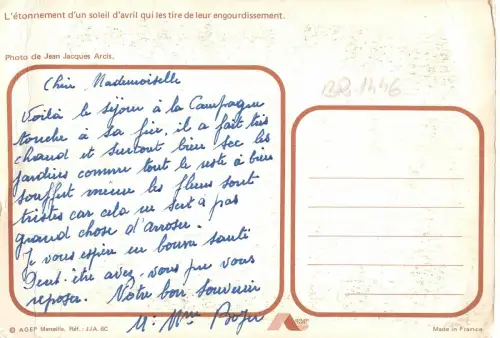 L'étonnement d'un soleil d'avril qui les tire de leur engourdissement.
Photo de Jean Jacques Arcis.
BR 1446
Chère Mademoiselle
Voilà le séjour à la Campagne
touche à sa fin, il a fait très
chaud et surtout bien sec les
jardins comme tout le reste à bien
souffert même les fleurs sont
tristes car cela ne sert à pas
grand chose d'arroser.
Je vous espère en bonne santé
Peut-être avez-vous pu vous
reposer. Notre bon souvenir
M. Mme Boyer
© AGEP Marseille. Réf.: JJA. 6C
AGEP
Made in France